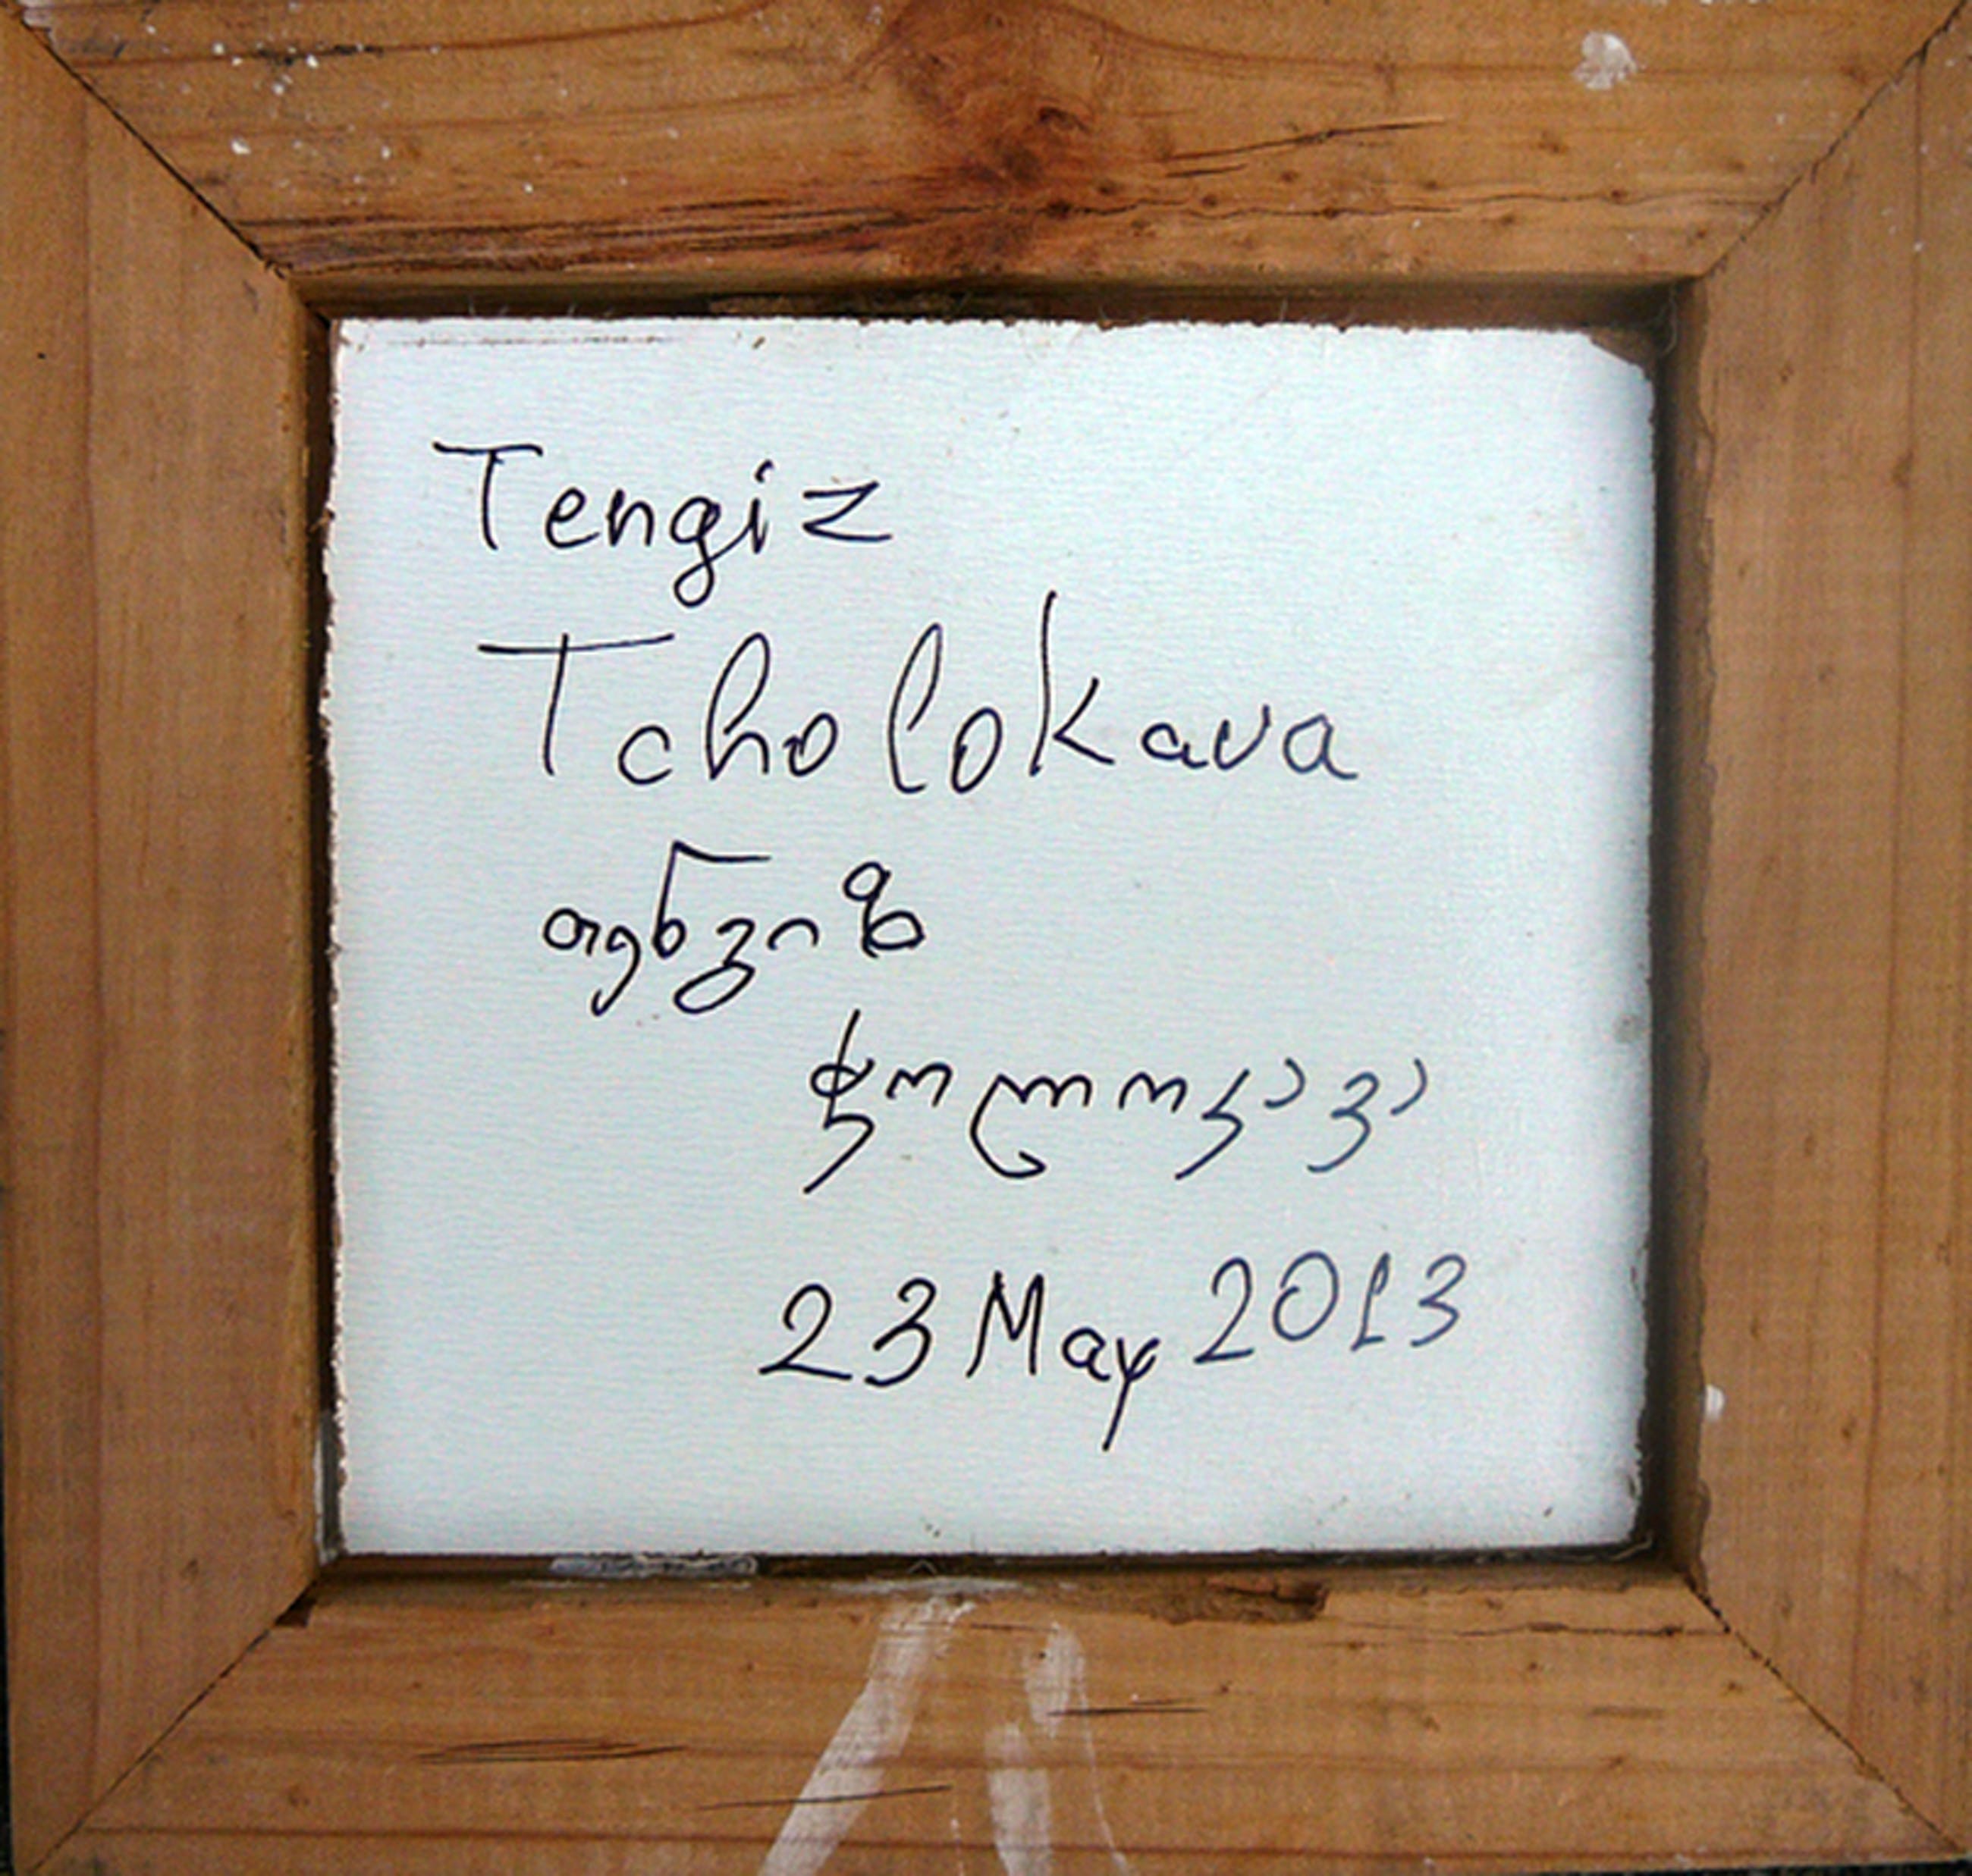 Tengiz
Tcholokava
თენგიზ
ჭოლოკავა
23 May 2013